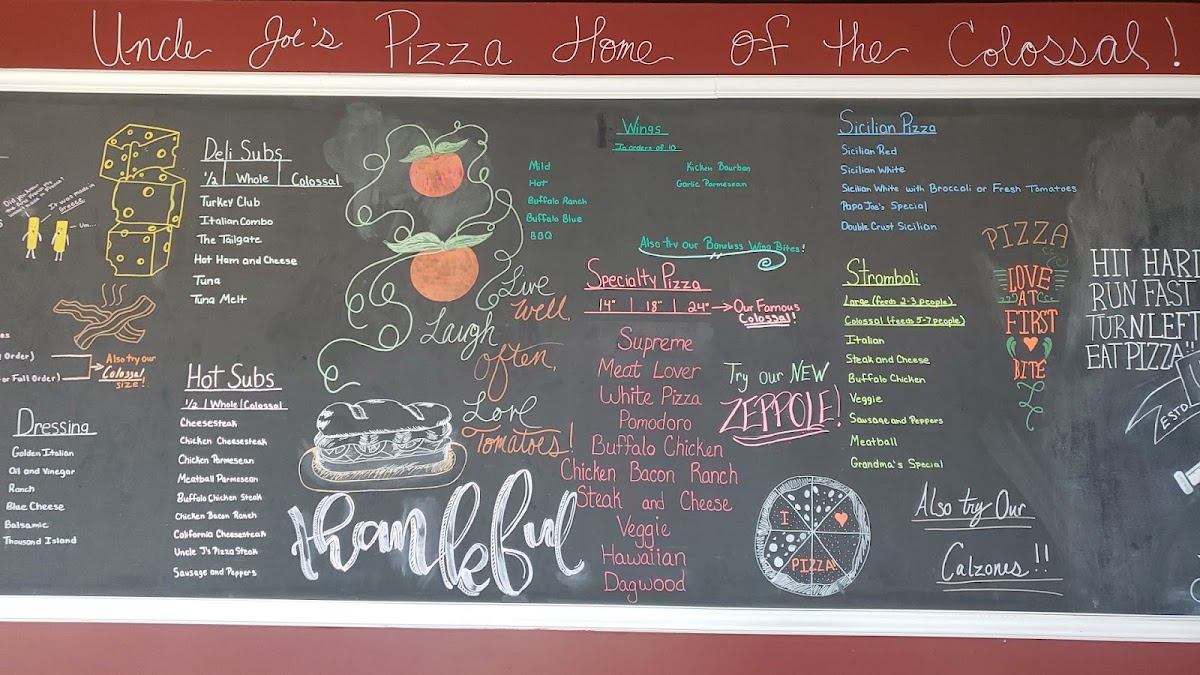 Uncle Joe's Pizza Home of the Colossal!
Did you know
It was made in
Greece
Um...
Order)
or Full Order)
Also try our
Colossal
size!
Dressing
Golden Italian
Oil and Vinegar
Ranch
Blue Cheese
Balsamic
Thousand Island
Deli Subs
1/2 | Whole | Colossal
Turkey Club
Italian Combo
The Tailgate
Hot Ham and Cheese
Tuna
Tuna Melt
Hot Subs
1/2 | Whole | Colossal
Cheesesteak
Chicken Cheesesteak
Chicken Parmesean
Meatball Parmesean
Buffalo Chicken Steak
Chicken Bacon Ranch
California Cheesesteak
Uncle J's Pizza Steak
Sausage and Peppers
Live
Well.
Laugh
often.
Love
Tomatoes!
thankful
Wings
In orders of 10
Mild
Hot
Buffalo Ranch
Buffalo Blue
BBQ
Kicken Bourbon
Garlic Parmesean
Also try our Boneless Wing Bites!
Specialty Pizza
14" | 18" | 24" → Our Famous
Colossal!
Supreme
Meat Lover
White Pizza
Pomodoro
Buffalo Chicken
Chicken Bacon Ranch
Steak and Cheese
Veggie
Hawaiian
Dagwood
Try our NEW
ZEPPOLE!
I
PIZZA
Sicilian Pizza
Sicilian Red
Sicilian White
Sicilian White with Broccoli or Fresh Tomatoes
Papa Joe's Special
Double Crust Sicilian
Stromboli
Large (feeds 2-3 people)
Colossal (feeds 5-7 people)
Italian
Steak and Cheese
Buffalo Chicken
Veggie
Sausage and Peppers
Meatball
Grandma's Special
Also try Our
Calzones!!
PIZZA
LOVE
AT
FIRST
BITE
HIT HARD
RUN FAST
TURN LEFT
EAT PIZZA"
ESTD